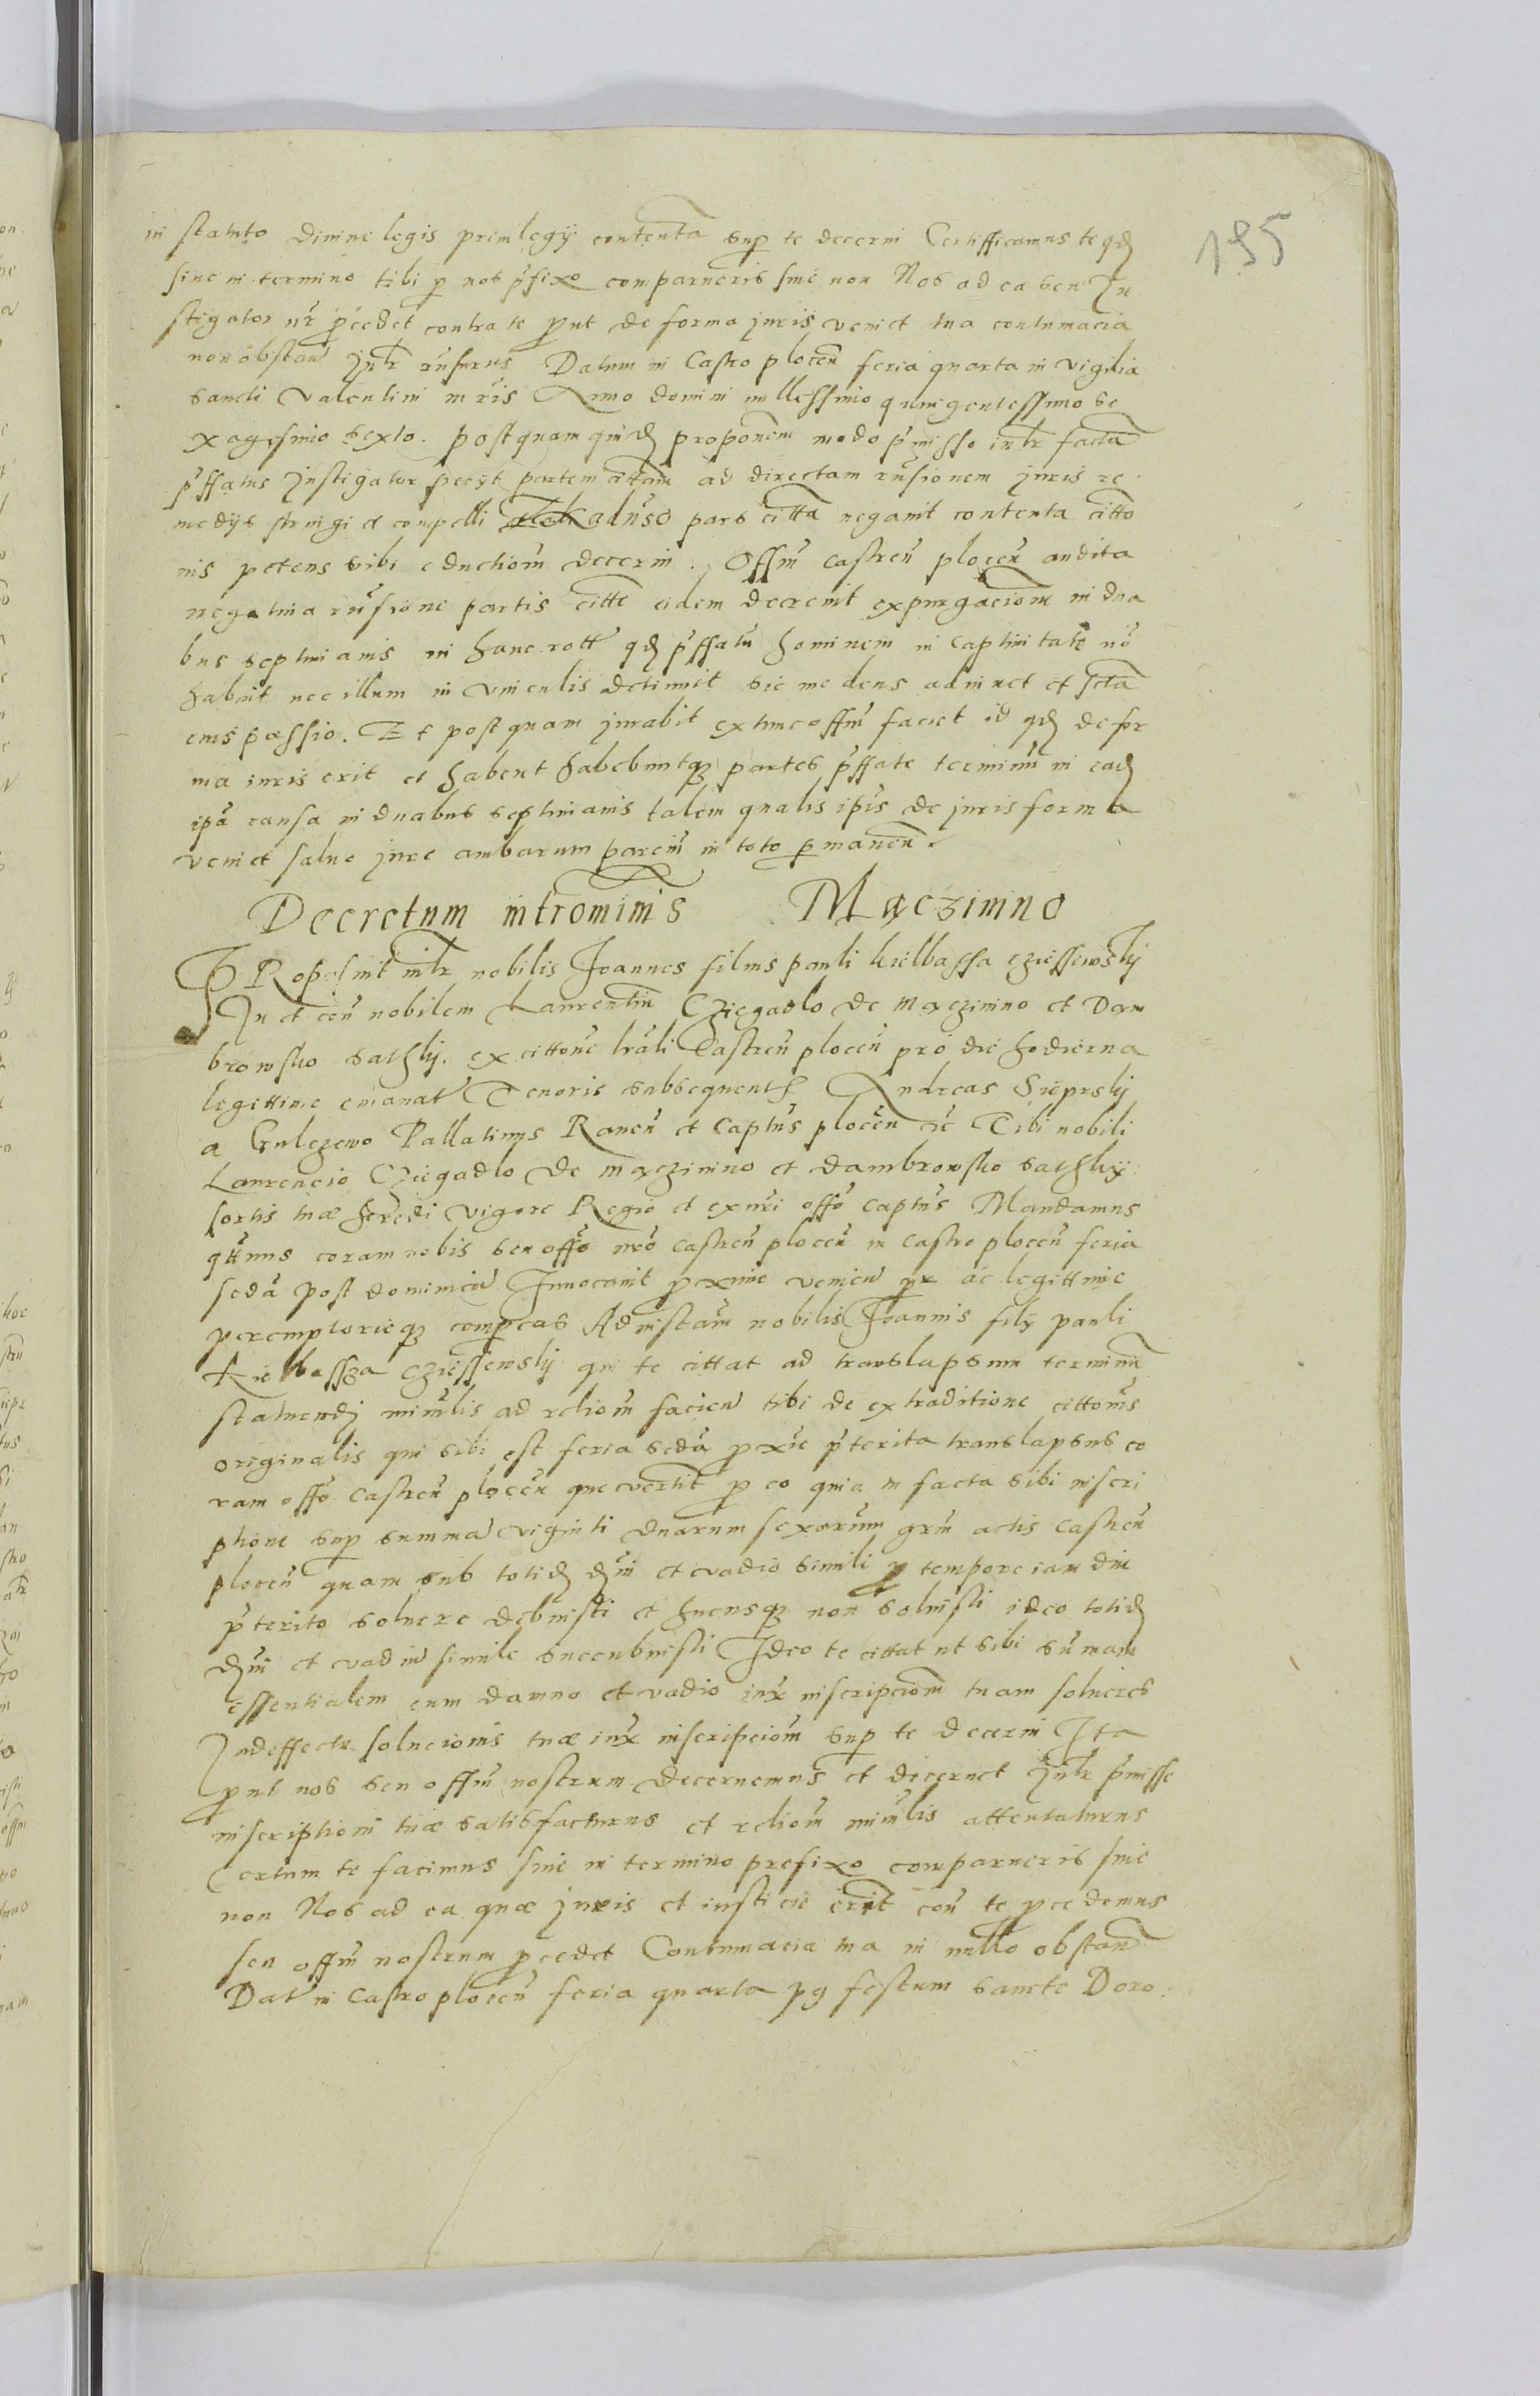 195
in statuto divine legis privilegij contenta sup te decerni Certifficamus te qđ
sive in termino tibi p nos p̃fixo comparueris sive non Nos ad ea seu In
stigator nr̃ p̃cedet contra te p̱ut de forma juris veniet tua contumacia
non obstañ Jntr̃ rũsurus Datum in Castro plocen̄ feria quarta in vigilia
sancti valentini mr̃is Anno domini millessimo quingentessimo se
xagesimo sexto. postquam quidẽ proponem modo p̃misso intr̃ facta
p̃ffatus Jnstigator petijt partem cittam̃ ad directam rũsionem juris re
medijs stringi et compelli aduerso pars citta negavit contenta citto
nis petens sibi eductiom̃ decerni. Offm̃ castren̄ plocen̄ audita
negatiua rũsione partis citte eidem decrevit expurgaciom̃ in dua
bus septimanis in hanc rott qđ p̃ffatũ hominem in captivitate nõ
habuit nec illum in vinculis detinuit sic me deus adiuvet et scta
eius passio. Et postquam jurabit extunc offm̃ faciet id qđ de for
ma iuris erit et habent habebuntqʒ partes p̃ffate terminũ in eađ
ipã causa in duabus septimanis talem qualis ip̃is de juris forma
veniet salvo jure ambarum parciũ in toto p̱manen̄.
Decretum intromim̃s Mączimino
PRoposuit intr̃ nobilis Joannes filius pauli kielbassa czessewskij
In et con̄ nobilem Laurentiũ Cziegadlo de mączimino et Dam
browsko sachij. ex cittone lrãli Castren̄ plocen̄ pro die hodierna
legettime emanat Tenoris subsequentʒ Andreas Sieprskij
a Gulczewo Pallatinus Raven̄ et Captũs plocen̄ ec̃ Tibi nobili
Laurencio Cziegadlo de mączimino et dambrowsko sachij
sortis tuæ heredi vigore Regio et ex nr̃i offõ captũs Mandamus
qttñus coram nobis seu offõ nrõ castren̄ plocen̄ in castro plocen̄ feria
sedã post dominicã Jnvocavit proxime venien̄ pr̃ ac legittime
peremptorieqʒ comp̱eas Ad instam̃ nobilis Joannis filij pauli
Kielbassza czessewskij qui te cittat ad translapsum terminũ
statuendj minr̃lis ad reliom̃ facien̄ tibi de extraditione cittom̃s
originalis qui tibi est feria sedã proxĩe p̃terita translapsus co
ram offõ castren̄ plocen̄ que vertit p̱ eo quia in facta sibi inscri
ptione sup summa viginti duarum sexaruim grm̃ actis castren̄
plocen̄ quam sub totiđ đm̃ et vadio simili p̱ tempore iam diu
p̃terito solvere debuisti et hucusqʒ non soluisti ideo totiđ
đm̃ et vadiũ simile succubuisti Jdeo te cittat ut sibi sũmam
essentialem cum damno et vadio iux̃ inscripciom̃ tuam solveres
Jndeffectu solucionis tuæ iux̃ inscripciom̃ sup te decerni Jta
p̱ut nos seu offm̃ nostrum decernemus et decernet Jntr̃ p̃misse
inscriptioni tuæ satisfacturus et reliom̃ minr̃lis attentaturus
Certum te facimus sive in termino prefixo comparueris sive
non Nos ad ea quæ juris et iusticie erit con̄ te p̱cedemus
seu offm̃ nostrum p̱cedet Contumacia tua in nullo obstañ
Dat in Castro plocen̄ feria quarta pꝯ festum sancte Doro.